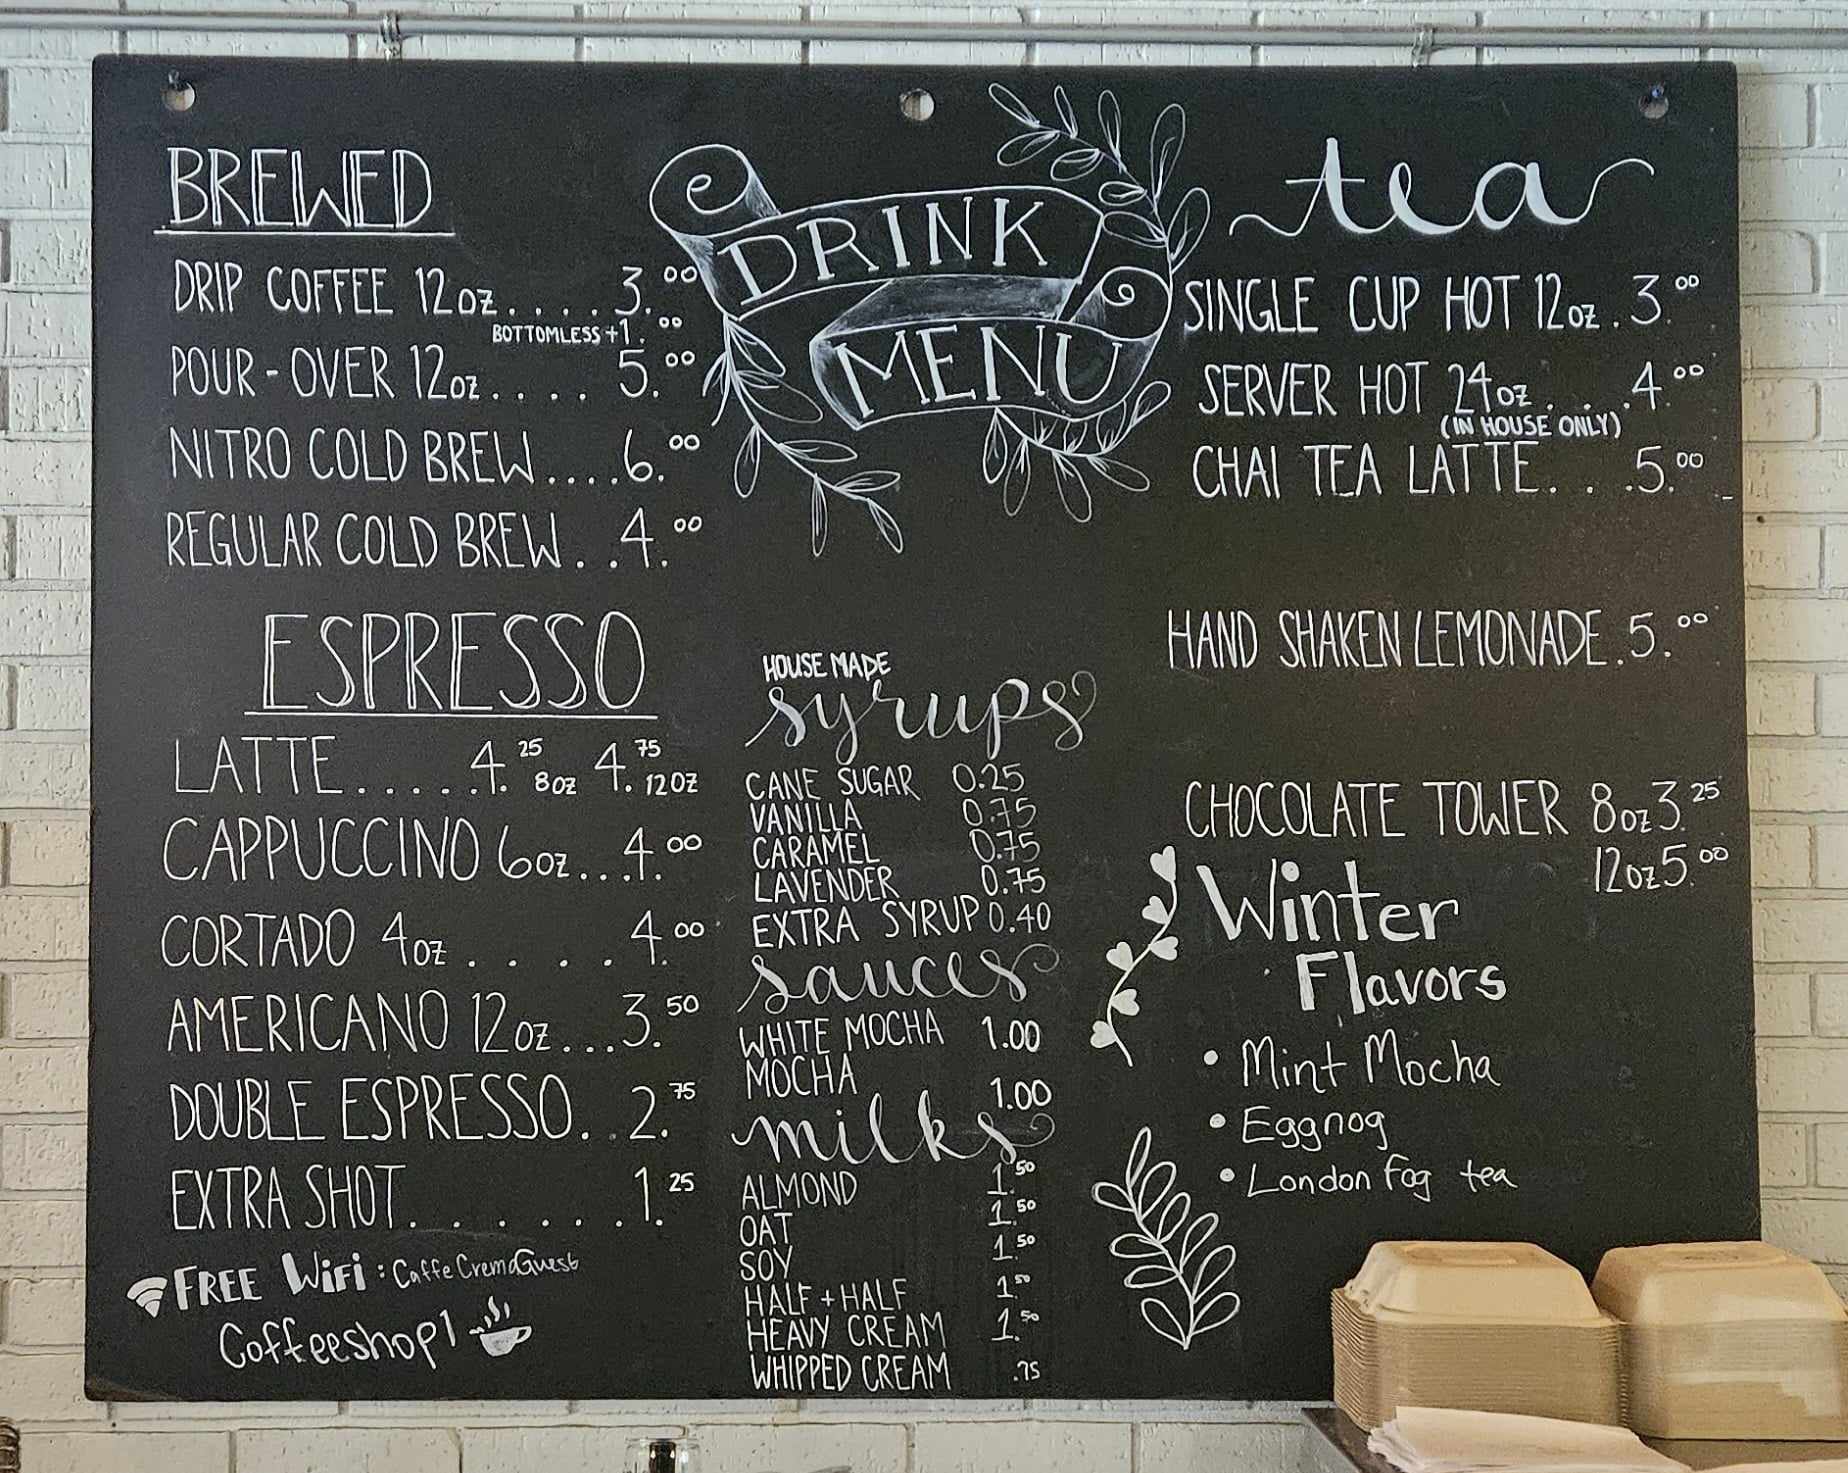 DRINK
MENU
BREWED
DRIP COFFEE 12oz.....3.00
BOTTOMLESS+1.00
POUR-OVER 12oz.....5.00
NITRO COLD BREW....6.00
REGULAR COLD BREW..4.00
ESPRESSO
LATTE......4.25 8oz 4.75 12oz
CAPPUCCINO 6oz...4.00
CORTADO 4oz.....4.00
AMERICANO 12oz...3.50
DOUBLE ESPRESSO..2.75
EXTRA SHOT.......1.25
FREE WiFi: CaffeCremaGuest
Coffeeshop1
HOUSE MADE
syrups
CANE SUGAR 0.25
VANILLA 0.75
CARAMEL 0.75
LAVENDER 0.75
EXTRA SYRUP 0.40
sauces
WHITE MOCHA 1.00
MOCHA 1.00
milks
ALMOND 1.50
OAT 1.50
SOY 1.50
HALF+HALF 1.50
HEAVY CREAM 1.50
WHIPPED CREAM .75
tea
SINGLE CUP HOT 12oz.3.00
SERVER HOT 24oz....4.00
(IN HOUSE ONLY)
CHAI TEA LATTE...5.00
HAND SHAKEN LEMONADE.5.00
CHOCOLATE TOWER 8oz 3.25
12oz 5.00
Winter
Flavors
• Mint Mocha
• Eggnog
• London Fog tea